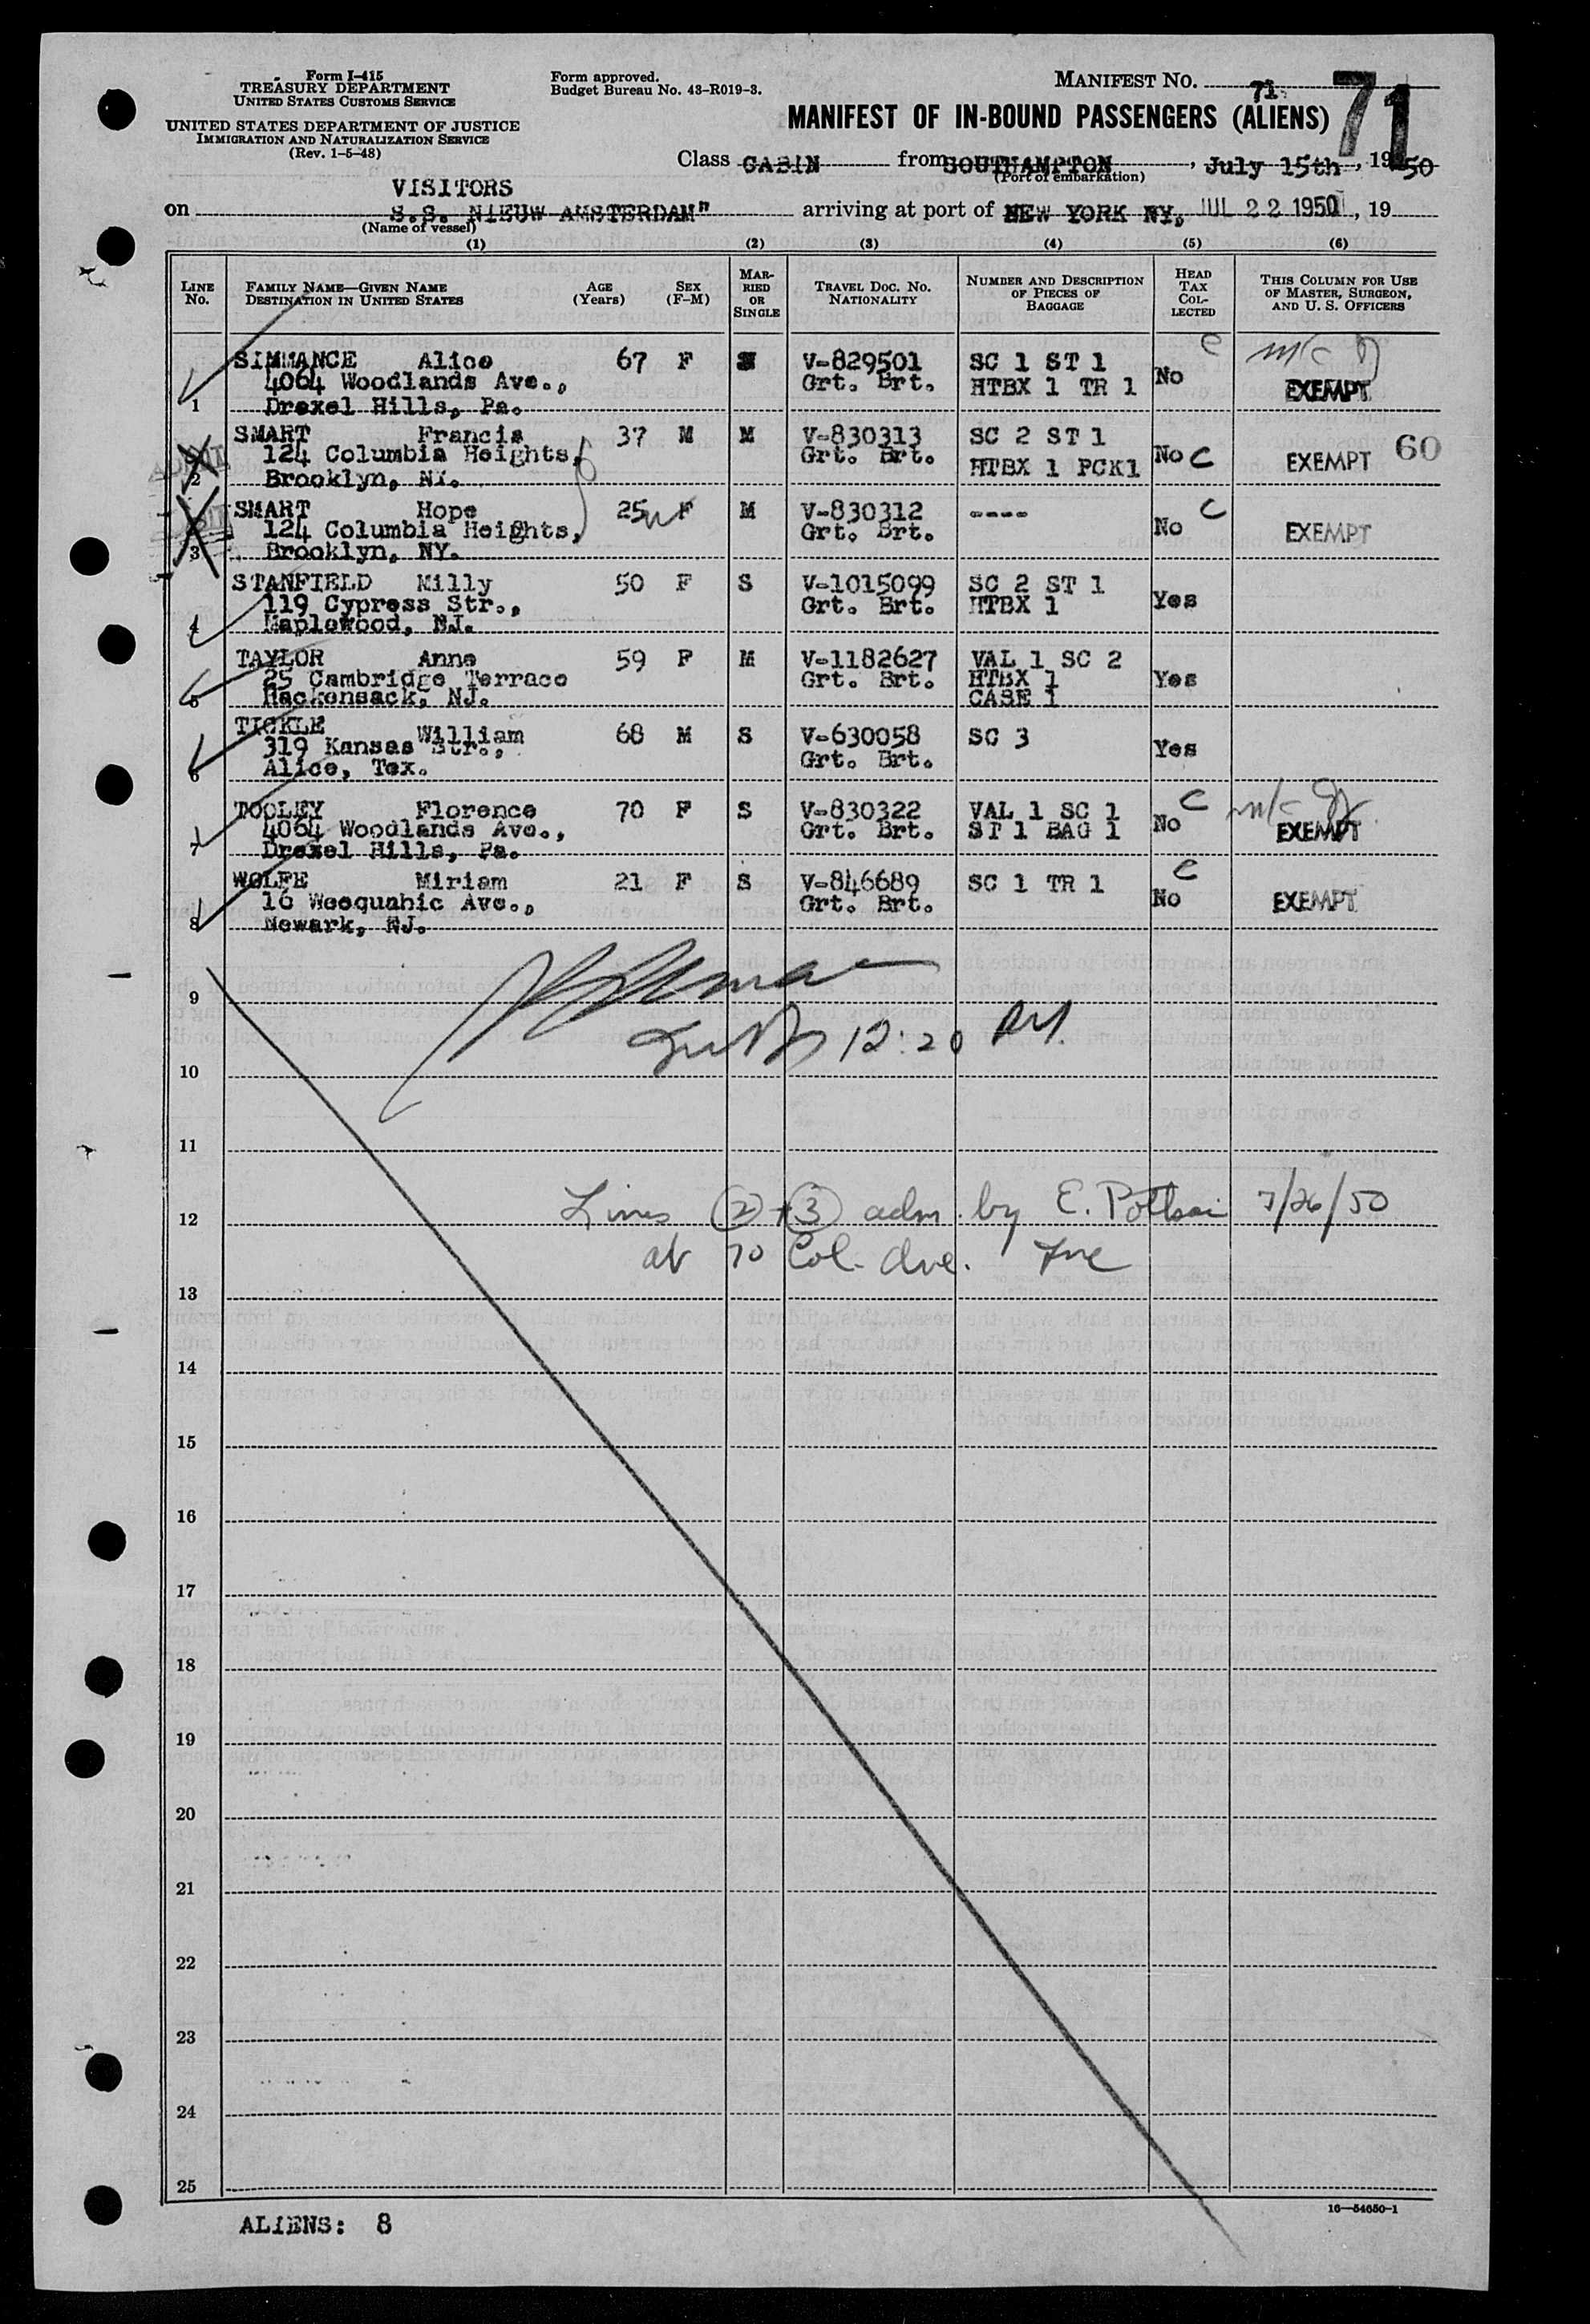 Form I-415
TREASURY DEPARTMENT
UNITED STATES CUSTOMS SERVICE
UNITED STATES DEPARTMENT OF JUSTICE
IMMIGRATION AND NATURALIZATION SERVICE
(Rev. 1-5-48)
Form approved.
Budget Bureau No. 43-R019-3.
MANIFEST NO. 71
71
MANIFEST OF IN-BOUND PASSENGERS (ALIENS)
Class CABIN from SOUTHAMPTON, July 15th, 1950
(Port of embarkation)
VISITORS
on S.S. NIEUW AMSTERDAM" arriving at port of NEW YORK NY, JUL 22 1950, 19
(Name of vessel)
(1) (2) (3) (4) (5) (6)
LINE No.
FAMILY NAME—GIVEN NAME
DESTINATION IN UNITED STATES
AGE (Years)
SEX (F-M)
MARRIED OR SINGLE
TRAVEL DOC. NO. NATIONALITY
NUMBER AND DESCRIPTION OF PIECES OF BAGGAGE
HEAD TAX COLLECTED
THIS COLUMN FOR USE OF MASTER, SURGEON, AND U. S. OFFICERS
SIMMANCE Alice 67 F V-829501 SC 1 ST 1 C
4064 Woodlands Ave., Grt. Brt. HTBX 1 TR 1 No EXEMPT
1 Drexel Hills, Pa.
SMART Francis 37 M M V-830313 SC 2 ST 1 60
124 Columbia Heights, Grt. Brt. HTBX 1 PCK1 No C EXEMPT
2 Brooklyn, NY.
SMART Hope 25 F M V-830312 ---- C
124 Columbia Heights, Grt. Brt. No EXEMPT
3 Brooklyn, NY.
STANFIELD Milly 50 F S V-1015099 SC 2 ST 1
119 Cypress Str., Grt. Brt. HTBX 1 Yes
4 Maplewood, NJ.
TAYLOR Anne 59 F M V-1182627 VAL 1 SC 2
25 Cambridge Terrace Grt. Brt. HTBX 1 Yes
5 Hackensack, NJ. CASE 1
TICKLE William 68 M S V-630058 SC 3
319 Kansas Str., Grt. Brt. Yes
6 Alice, Tex.
TOOLEY Florence 70 F S V-830322 VAL 1 SC 1 C
4064 Woodlands Ave., Grt. Brt. ST 1 BAG 1 No EXEMPT
7 Drexel Hills, Pa.
WOLFE Miriam 21 F S V-846689 SC 1 TR 1 C
16 Weequahic Ave., Grt. Brt. No EXEMPT
8 Newark, NJ.
9
12:20
10
11
Lines 2 + 3 adm. by E. 7/26/50
12
at 70 Col. Ave.
13
14
15
16
17
18
19
20
21
22
23
24
25
16—54650-1
ALIENS: 8